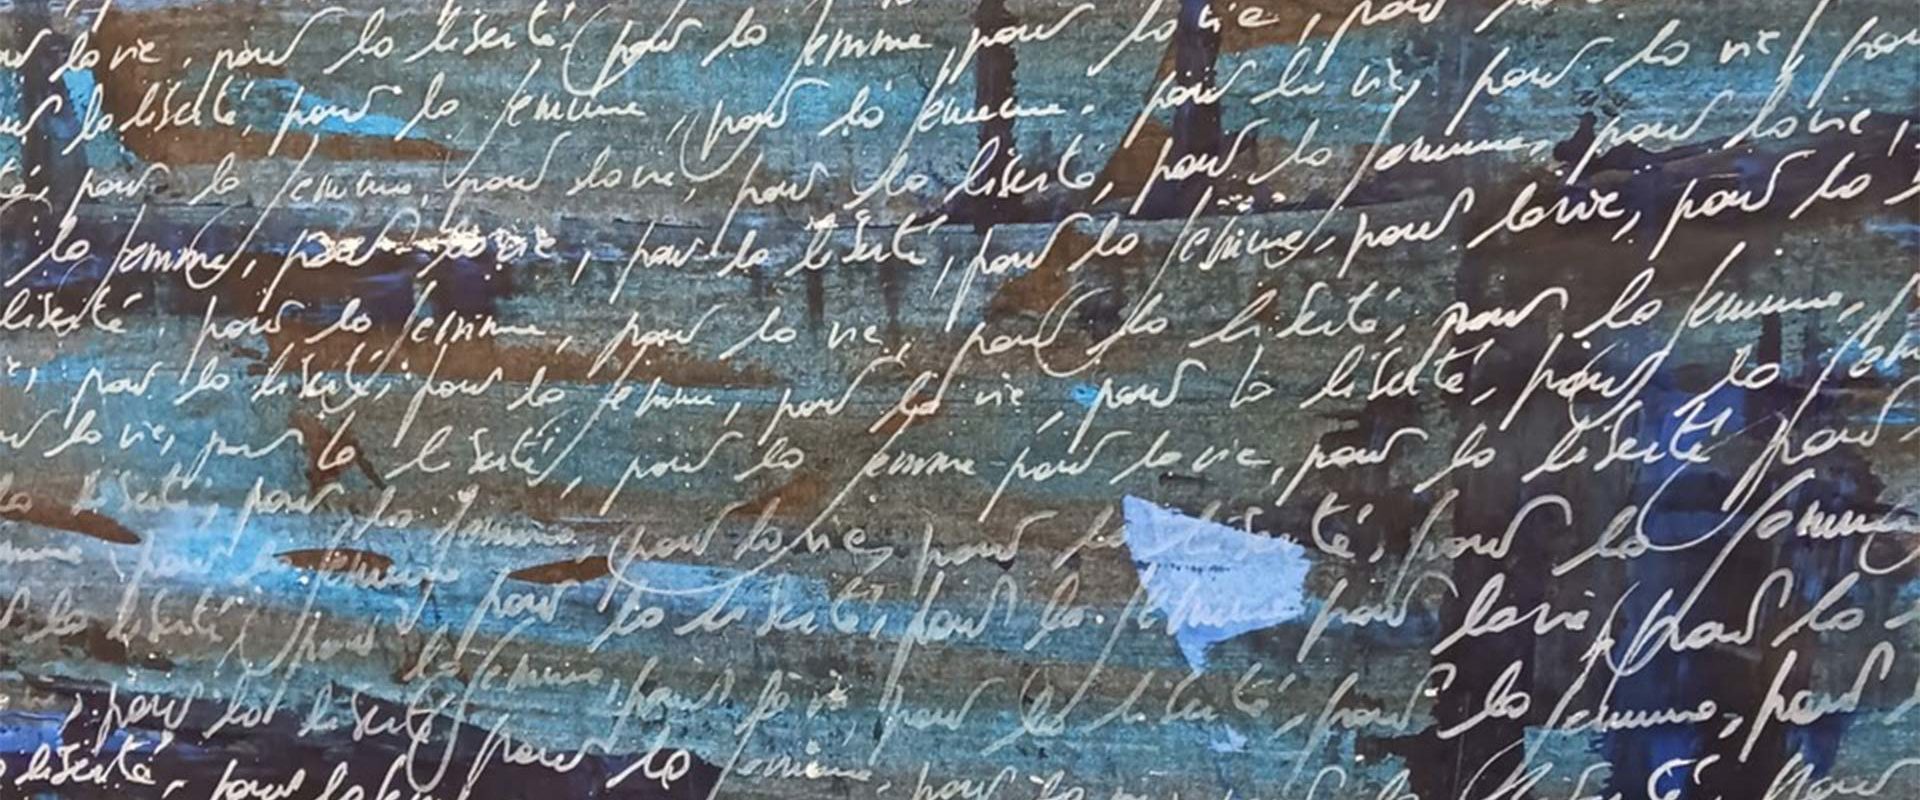 la vie, pour la liberté, pour la femme, pour la vie, pour la
la liberté, pour la femme, pour la femme. pour la vie, pour la vie, pour
pour la femme, pour la vie, pour la liberté, pour la femme, pour la vie,
la femme, pour la vie, pour la liberté, pour la femme, pour la vie, pour la
liberté, pour la femme, pour la vie, pour la liberté, pour la femme,
pour la liberté, pour la femme, pour la vie, pour la liberté, pour la
la vie, pour la liberté, pour la femme pour la vie, pour la liberté pour
la liberté, pour la femme, pour la vie, pour la liberté, pour la femme
pour la femme pour la liberté, pour la femme pour la vie, pour la
la liberté pour la femme, pour la vie, pour la liberté, pour la femme, pour
pour la liberté pour la femme
liberté, pour la